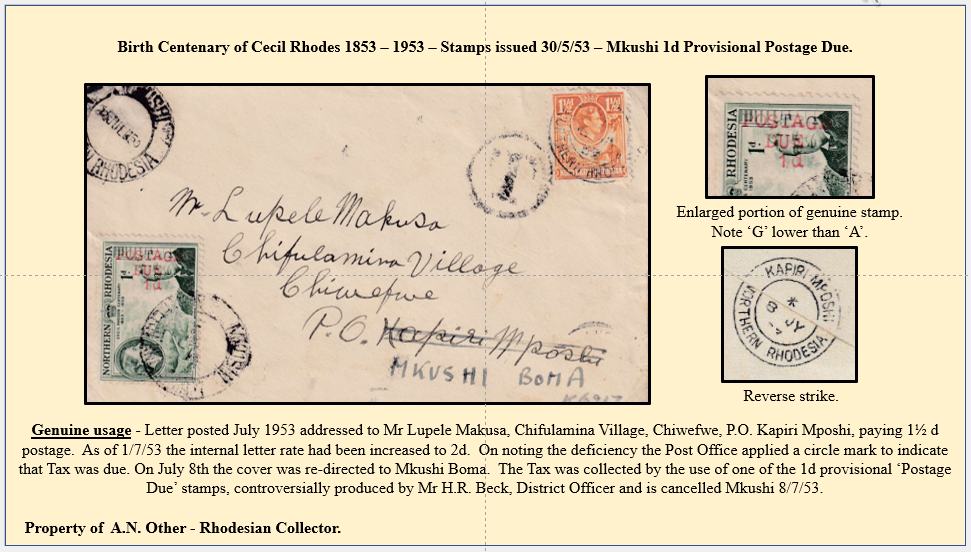 Birth Centenary of Cecil Rhodes 1853 – 1953 – Stamps issued 30/5/53 – Mkushi 1d Provisional Postage Due.
MKUSHI
RHODESIA
1½d
1½d
T
Mr Lupele Makusa
Chifulamina Village
Chiwefwe
P.O. Kapiri Mposhi
MKUSHI BOMA
POSTAG
DUE
1d
1d
NORTHERN RHODESIA
MKUSHI
RHODESIA
POSTAGE
DUE
1d
1d
Enlarged portion of genuine stamp.
Note ‘G’ lower than ‘A’.
KAPIRI MPOSHI
8 JY
NORTHERN RHODESIA
Reverse strike.
Genuine usage - Letter posted July 1953 addressed to Mr Lupele Makusa, Chifulamina Village, Chiwefwe, P.O. Kapiri Mposhi, paying 1½ d
postage.  As of 1/7/53 the internal letter rate had been increased to 2d.  On noting the deficiency the Post Office applied a circle mark to indicate
that Tax was due. On July 8th the cover was re-directed to Mkushi Boma.  The Tax was collected by the use of one of the 1d provisional ‘Postage
Due’ stamps, controversially produced by Mr H.R. Beck, District Officer and is cancelled Mkushi 8/7/53.
Property of  A.N. Other - Rhodesian Collector.